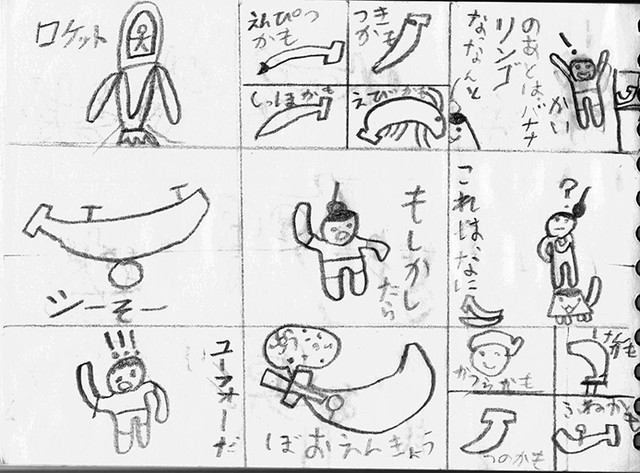 !
のあとはバナナ
かい
リンゴ
なななんと
?
これは、なに
けんかも
かつらかも
ふねかも
つのかも
つき
かも
えんぴつ
かも
えびかも
しっぽかも
もしかし
たら
ぼおえんきょう
ロケット
シーそー
!!!
ユーフォーだ